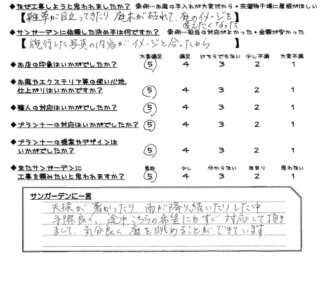 ◆なぜ工事しようと思われましたか? 条例…お庭の手入れが大変だから・洗濯物干場に屋根がほしい
【雑草が目立ってきたり 庭木が枯れて、庭のイメージを変えたくなった】
◆サンガーデンに依頼した決め手は何ですか? 条例…担当の対応が良かった・金額が安かった
【施行した写真の内容がイメージと合ったから】
大変満足 満足 どちらでもない 少し不満 大変不満
◆お店の印象はいかがでしたか? 5 4 3 2 1
◆お庭やエクステリア等の使い心地、仕上がりはいかがですか? 5 4 3 2 1
◆職人の対応はいかがでしたか? 5 4 3 2 1
◆プランナーの対応はいかがでしたか? 5 4 3 2 1
◆プランナーの提案やデザインはいかがでしたか? 5 4 3 2 1
◆またサンガーデンに工事を頼みたいと思われますか? 5 4 3 2 1
サンガーデンに一言
天候が悪かったり 雨が降り続いたりした中
手際良く、途中こちらの希望にもすぐ対応して頂き
まして、気分良く 庭を眺めることができています